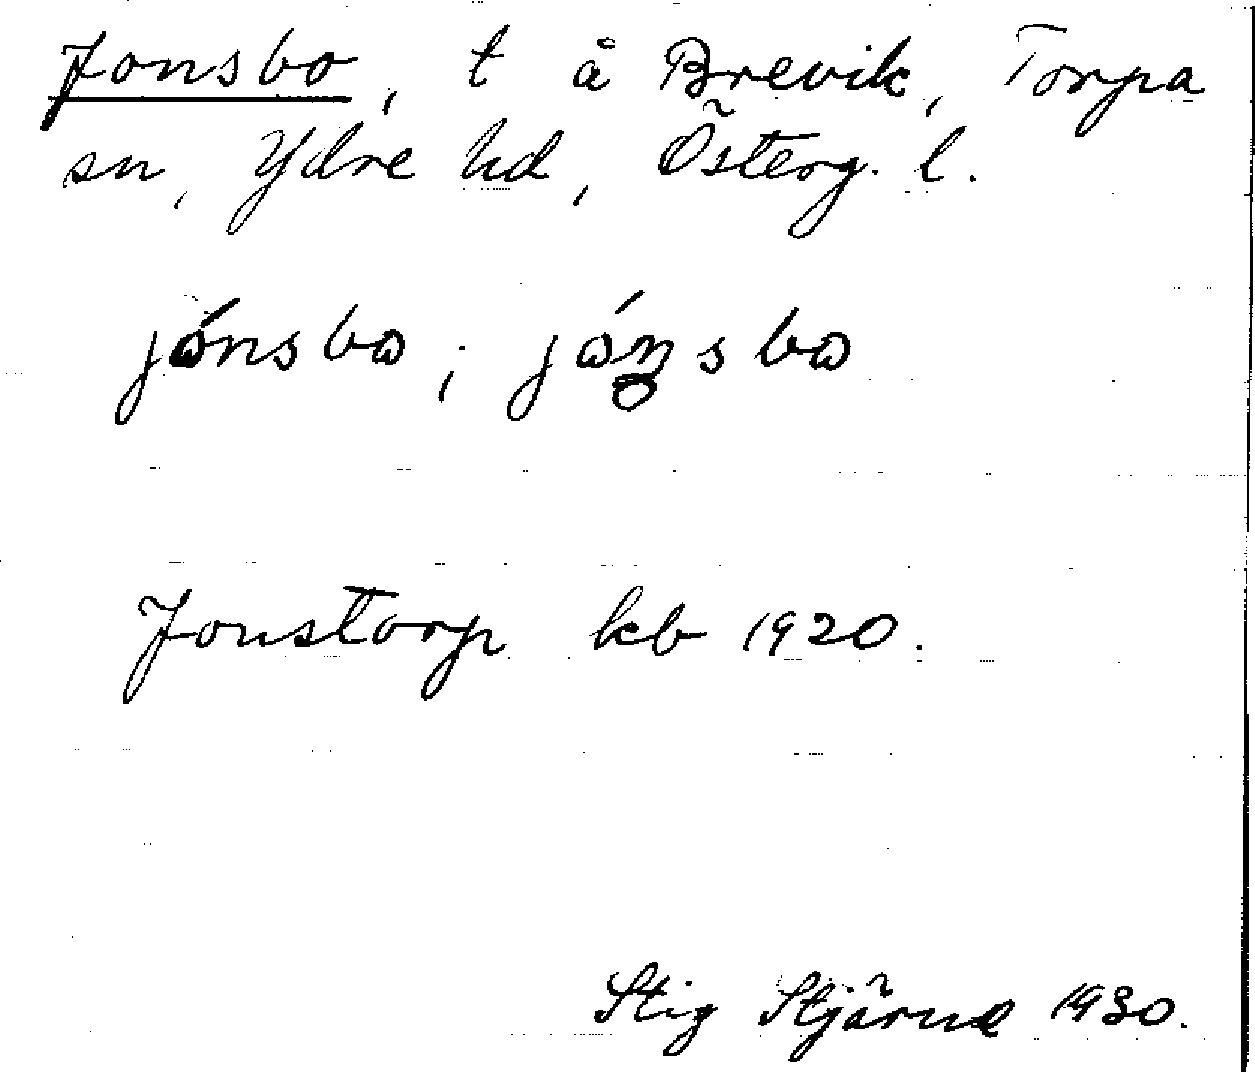 Jonsbo, t å Brevik, Torpa
sn, Ydre hd, Österg. l.
jónsbo; jón̥sbo
Jonstorp kb 1920.
Stig Stjärne 1930.